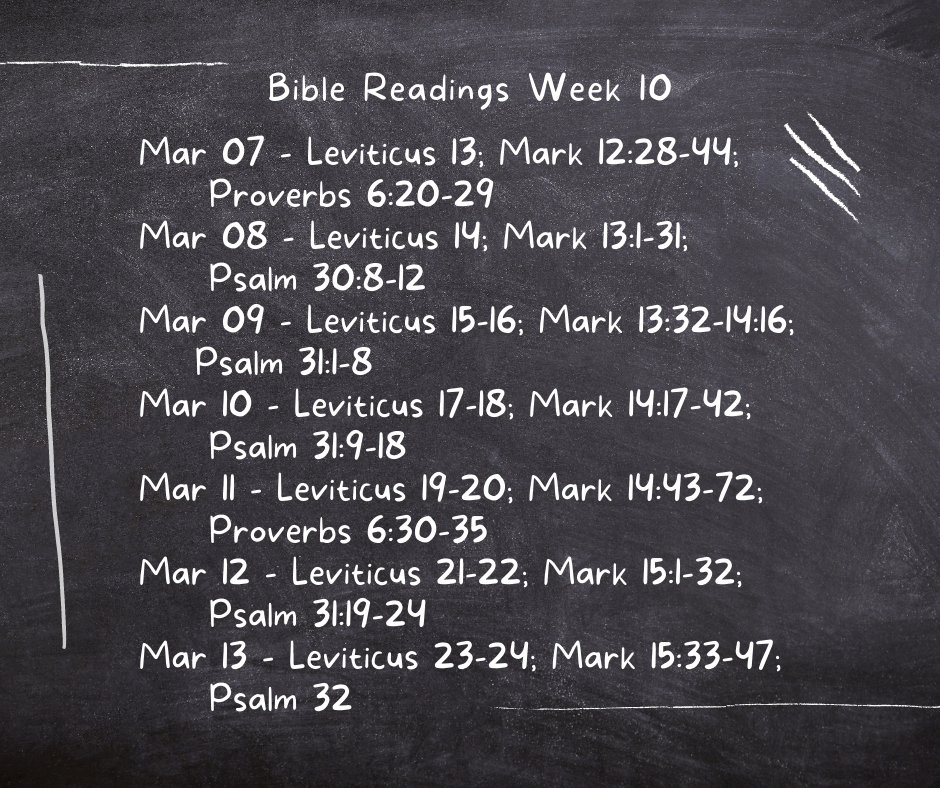 Bible Readings Week 10
Mar 07 - Leviticus 13; Mark 12:28-44;
Proverbs 6:20-29
Mar 08 - Leviticus 14; Mark 13:1-31;
Psalm 30:8-12
Mar 09 - Leviticus 15-16; Mark 13:32-14:16;
Psalm 31:1-8
Mar 10 - Leviticus 17-18; Mark 14:17-42;
Psalm 31:9-18
Mar 11 - Leviticus 19-20; Mark 14:43-72;
Proverbs 6:30-35
Mar 12 - Leviticus 21-22; Mark 15:1-32;
Psalm 31:19-24
Mar 13 - Leviticus 23-24; Mark 15:33-47;
Psalm 32